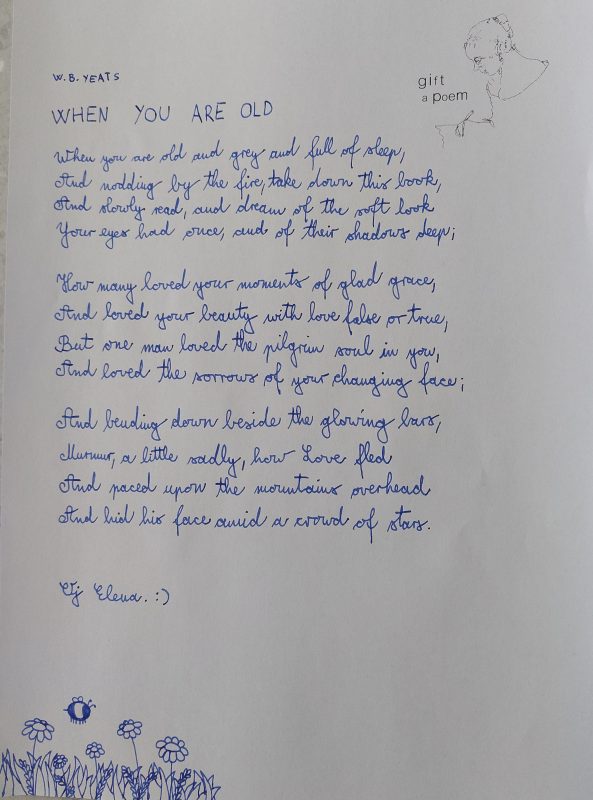 W.B. YEATS
gift
a poem
WHEN YOU ARE OLD
When you are old and grey and full of sleep,
And nodding by the fire, take down this book,
And slowly read, and dream of the soft look
Your eyes had once, and of their shadows deep;
How many loved your moments of glad grace,
And loved your beauty with love false or true,
But one man loved the pilgrim soul in you,
And loved the sorrows of your changing face;
And bending down beside the glowing bars,
Murmur, a little sadly, how Love fled
And paced upon the mountains overhead
And hid his face amid a crowd of stars.
Elena. :)